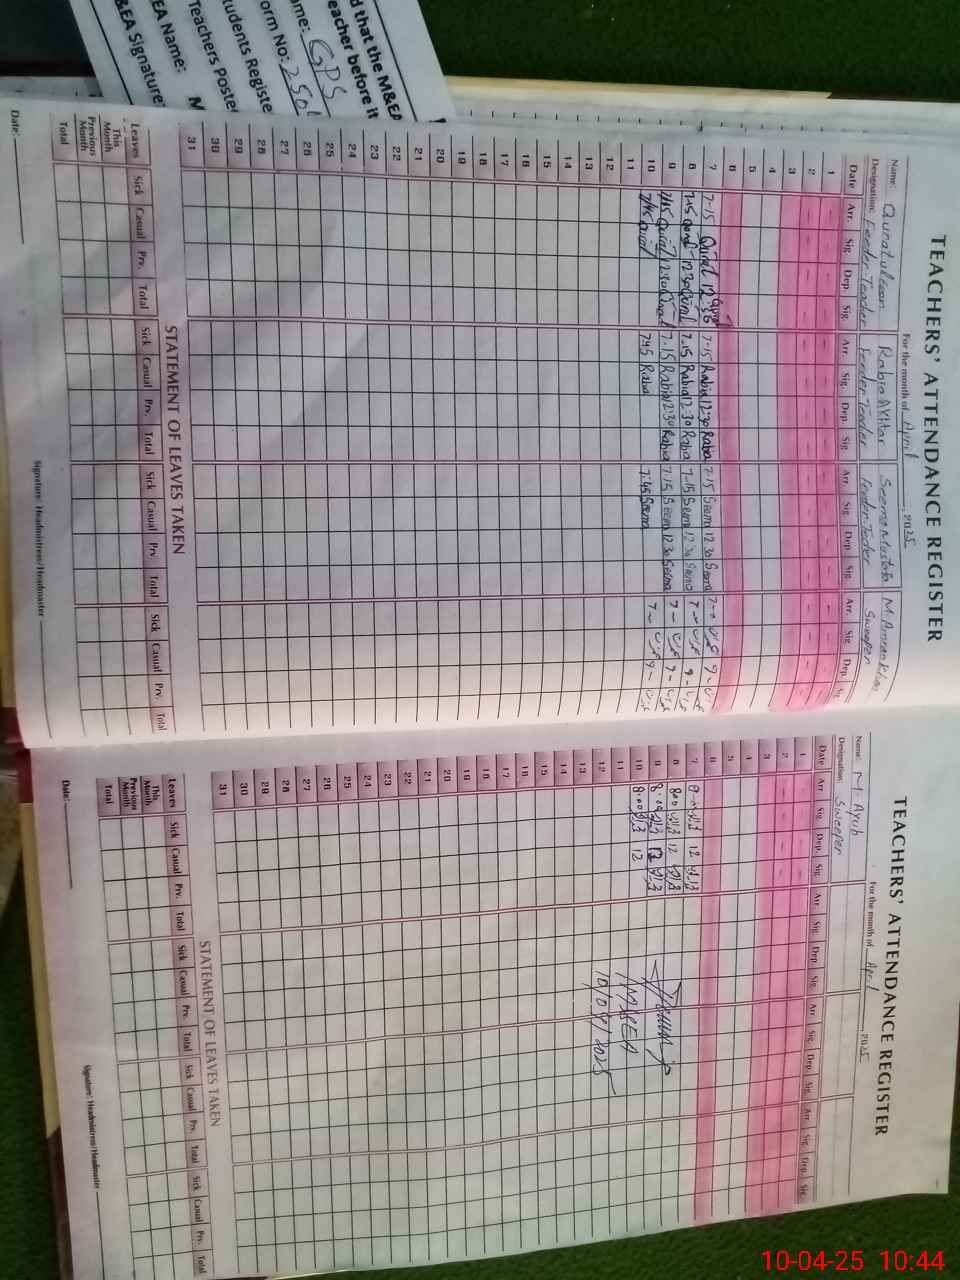 d that the M&EA
eacher before it
ame: GPS
orm No: 250
tudents Registe
Teachers Poste
EA Name:
&EA Signature:
TEACHERS' ATTENDANCE REGISTER
For the month of April, 2025
Name: Quratulaan Rabia Akhtar Seema Mustafa M. Amran Khan
Designation: Feeder Teacher Feeder Teacher Feeder Teacher Sweeper
Date Arr. Sig. Dep. Sig. Arr. Sig. Dep. Sig. Arr. Sig. Dep. Sig. Arr. Sig. Dep. Sig.
1
2
3
4
5
6
7 7-15 Qurat 12:30 Qurat 7-15 Rabia 12:30 Rabia 7-15 Seema 12:30 Seema 7- 9-
8 7-15 Qurat 12:30 Qurat 7.15 Rabia 12:30 Rabia 7-15 Seema 12:30 Seema 7- 9-
9 7:15 Qurat 12:30 Qurat 7.15 Rabia 12:30 Rabia 7.15 Seema 12:30 Seema 7- 9-
10 7:45 Qurat 7:45 Rabia 7:45 Seema 7- 9-
11
12
13
14
15
16
17
18
19
20
21
22
23
24
25
26
27
28
29
30
31
STATEMENT OF LEAVES TAKEN
Leaves Sick Casual Prv. Total Sick Casual Prv. Total Sick Casual Prv. Total Sick Casual Prv. Total
This Month
Previous Month
Total
Date: Signature: Headmistress/Headmaster
TEACHERS' ATTENDANCE REGISTER
For the month of April, 2025
Name: M. Ayub
Designation: Sweeper
Date Arr. Sig. Dep. Sig. Arr. Sig. Dep. Sig. Arr. Sig. Dep. Sig. Arr. Sig. Dep. Sig.
1
2
3
4
5
6
7 12
8 800 12
9 8:00 12
10 8:00 12
11
12
13
14
15
16
17
18
19
20
21
22
23
24
25
26
27
28
29
30
31
M&EA
10/04/2025
STATEMENT OF LEAVES TAKEN
Leaves Sick Casual Prv. Total Sick Casual Prv. Total Sick Casual Prv. Total Sick Casual Prv. Total
This Month
Previous Month
Total
Date: Signature: Headmistress/Headmaster
10-04-25 10:44